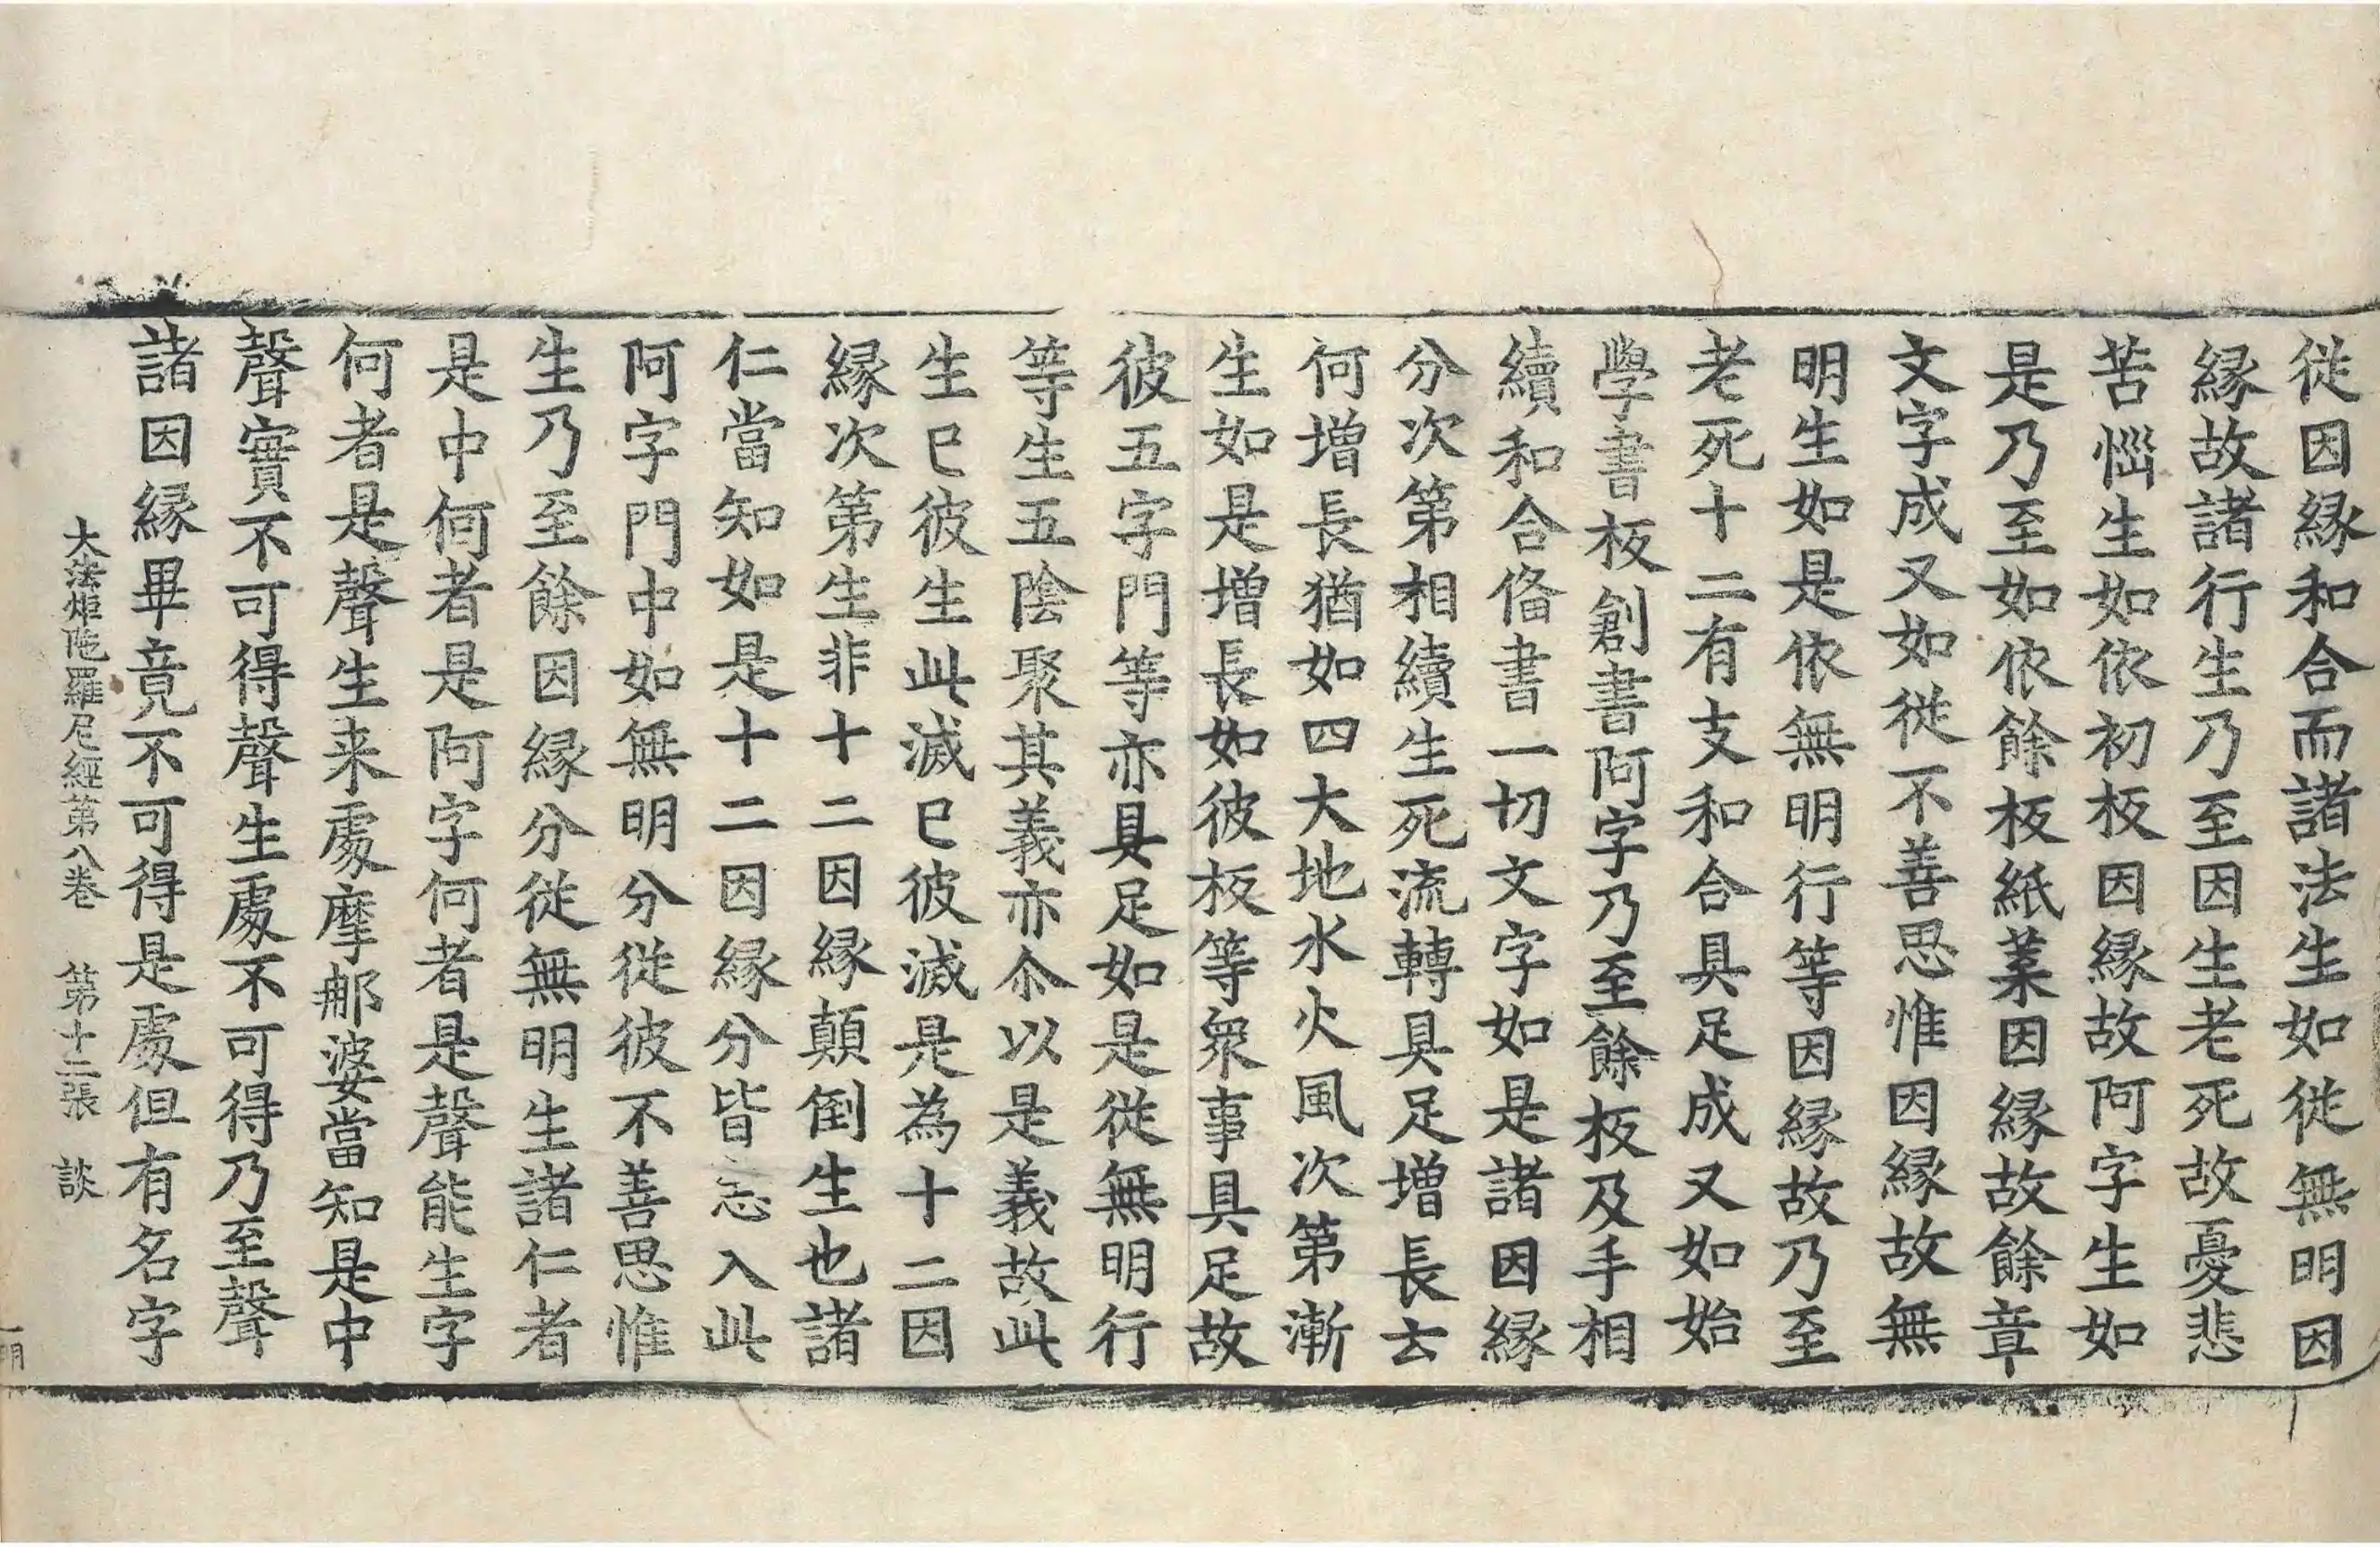 従因縁和合而諸法生如従無明因
縁故諸行生乃至因生老死故憂悲
苦惱生如依初板因縁故阿字生如
是乃至如依餘板紙葉因縁故餘章
文字成又如従不善思惟因縁故無
明生如是依無明行等因縁故乃至
老死十二有支和合具足成又如始
學書板創書阿字乃至餘板及手相
續和合俻書一切文字如是諸因縁
分次第相續生死流轉具足增長去
何增長猶如四大地水火風次第漸
生如是增長如彼板等衆事具足故
彼五字門等亦具足如是従無明行
等生五陰聚其義亦尒以是義故此
生已彼生此滅已彼滅是為十二因
縁次第生非十二因縁顛倒生也諸
仁當知如是十二因縁分皆忘入此
阿字門中如無明分従彼不善思惟
生乃至餘因縁分従無明生諸仁者
是中何者是阿字何者是聲能生字
何者是聲生来處摩那婆當知是中
聲實不可得聲生處不可得乃至聲
諸因縁畢竟不可得是處但有名字
大法炬陁羅尼經第八卷 第十二張 談